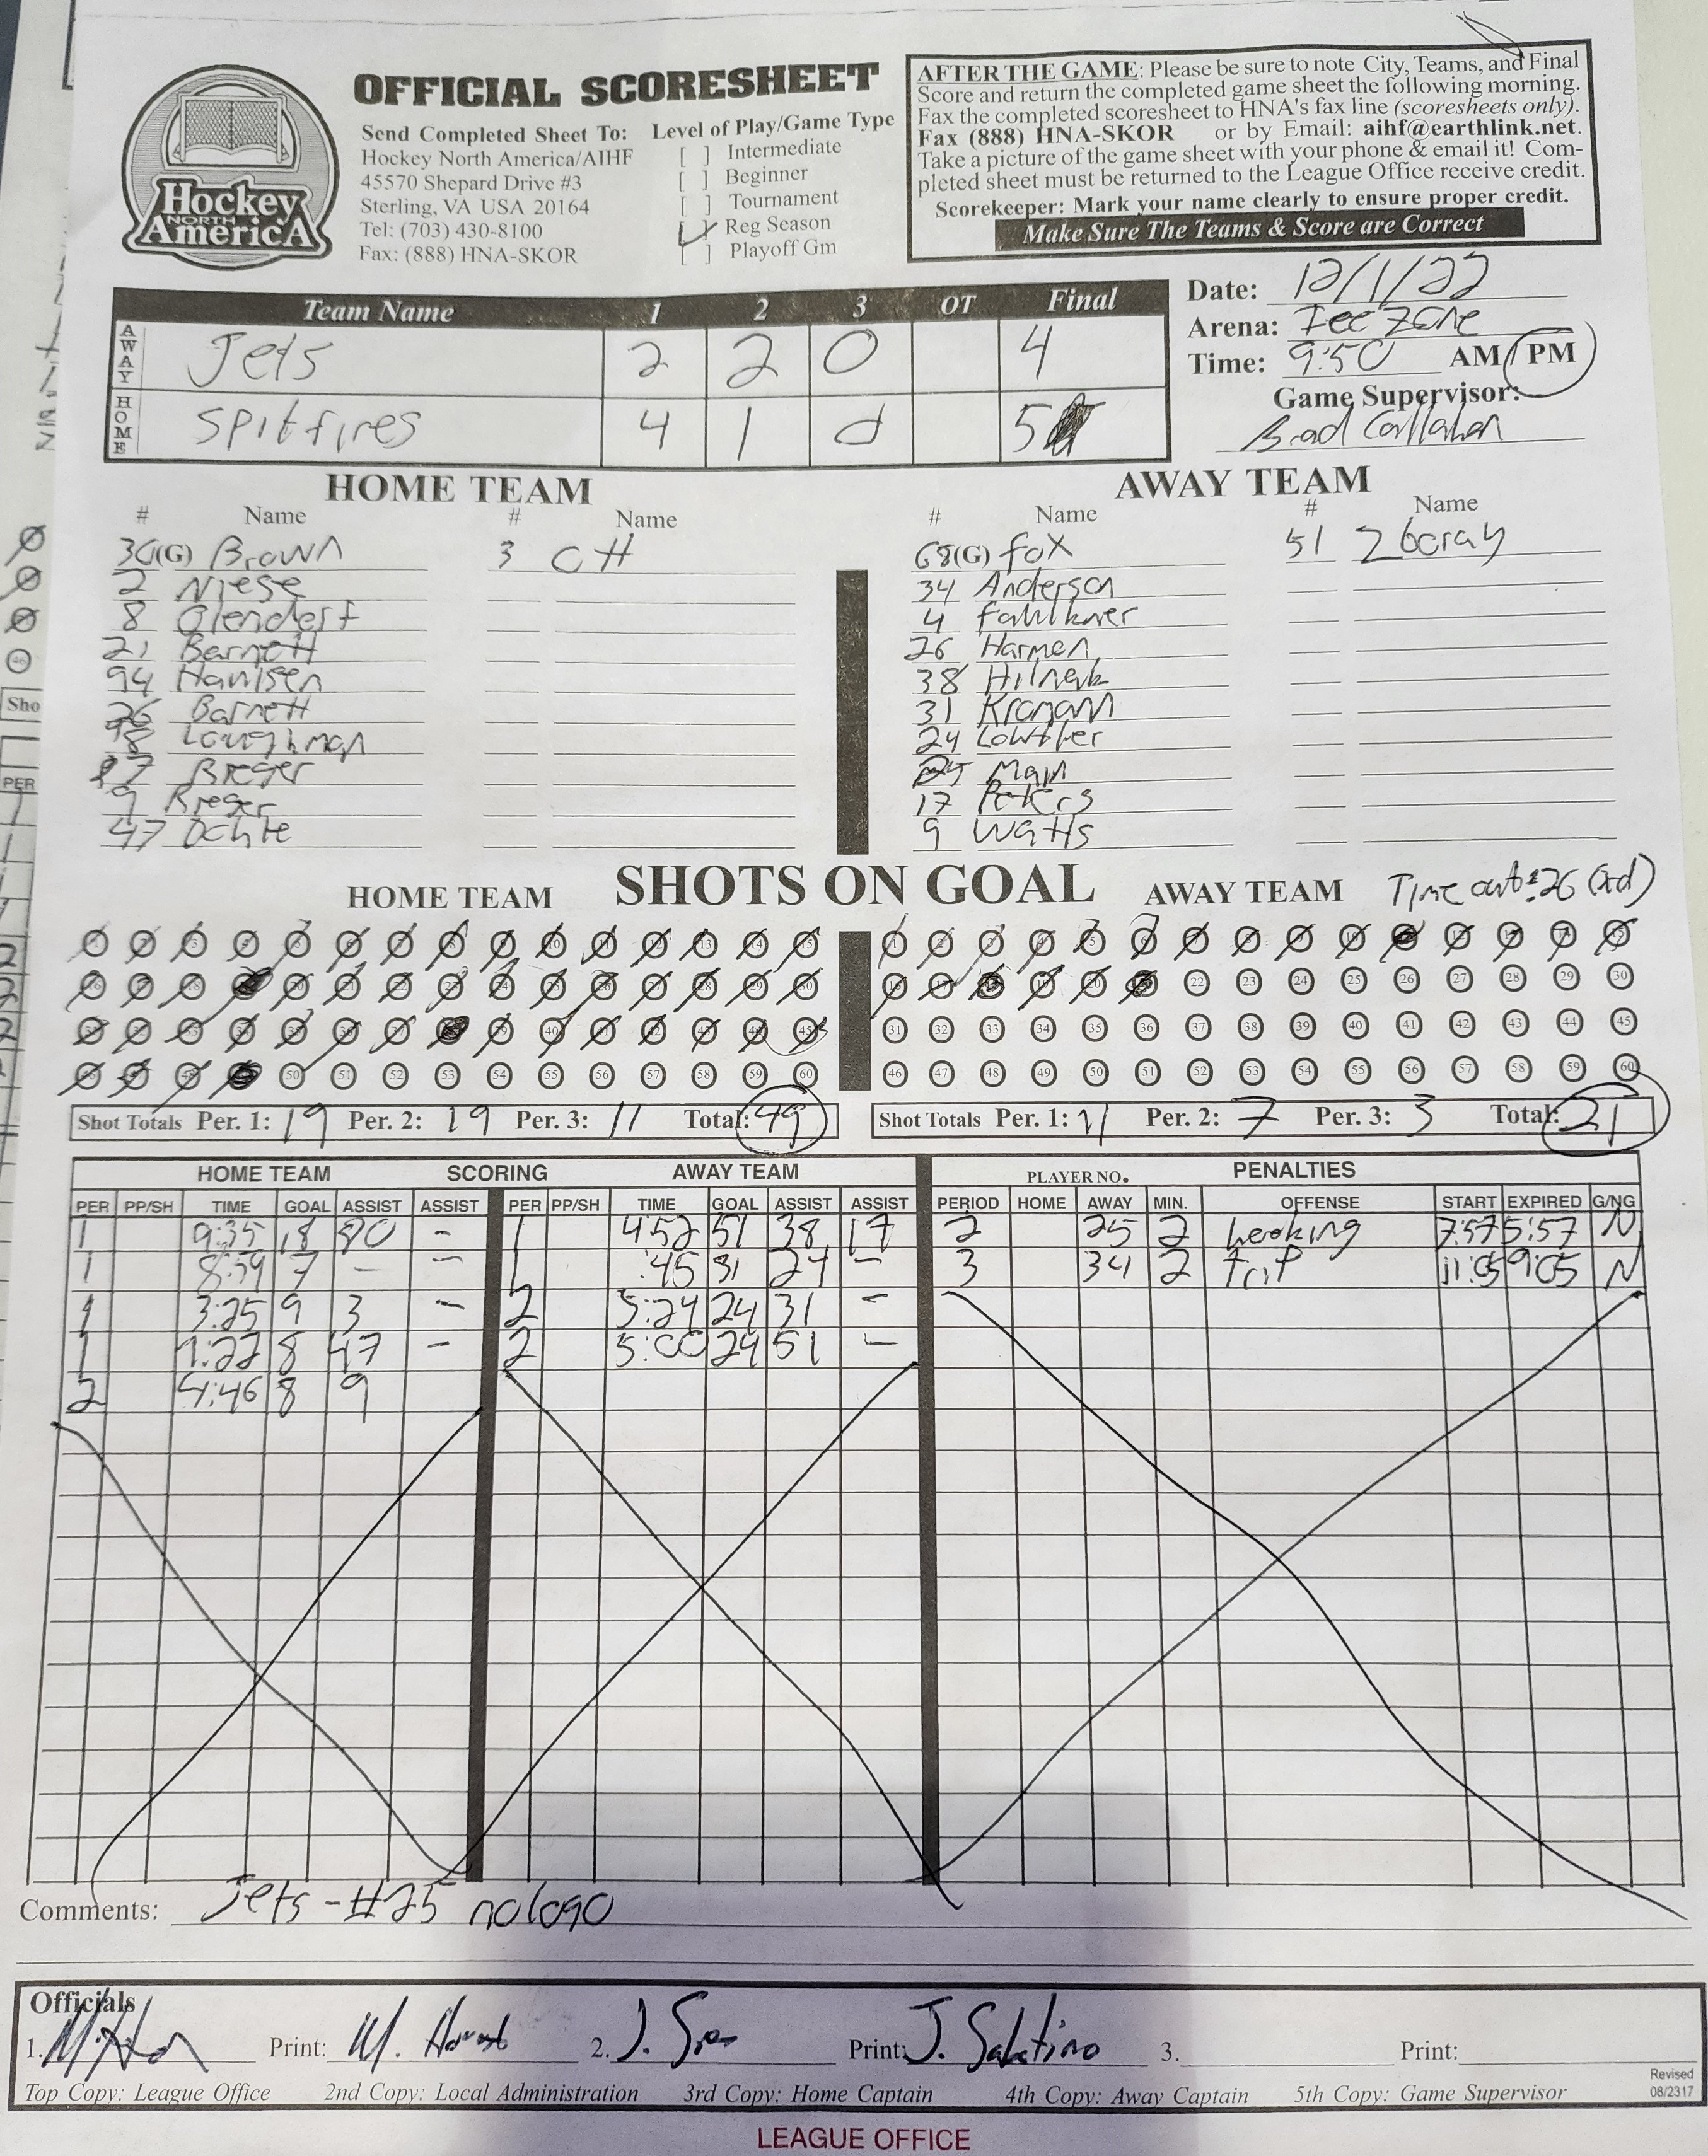 OFFICIAL SCORESHEET
Hockey
NORTH
AmericA
Send Completed Sheet To:
Hockey North America/AIHF
45570 Shepard Drive #3
Sterling, VA USA 20164
Tel: (703) 430-8100
Fax: (888) HNA-SKOR
Level of Play/Game Type
[ ] Intermediate
[ ] Beginner
[ ] Tournament
[✓] Reg Season
[ ] Playoff Gm
AFTER THE GAME: Please be sure to note City, Teams, and Final
Score and return the completed game sheet the following morning.
Fax the completed scoresheet to HNA's fax line (scoresheets only).
Fax (888) HNA-SKOR or by Email: aihf@earthlink.net.
Take a picture of the game sheet with your phone & email it! Com-
pleted sheet must be returned to the League Office receive credit.
Scorekeeper: Mark your name clearly to ensure proper credit.
Make Sure The Teams & Score are Correct
Team Name 1 2 3 OT Final
AWAY Jets 2 2 0 4
HOME Spitfires 4 1 0 5
Date: 12/1/22
Arena: Ice Zone
Time: 9:50 AM PM
Game Supervisor:
Brad Callahan
HOME TEAM
# Name # Name
30(G) Brown 3 OH
2 Niese
8 Olendorf
21 Barnett
94 Hansen
26 Barnett
Loughman
Rieger
9 Rieger
47 Ochte
AWAY TEAM
# Name # Name
68(G) Fox 51 Zboray
34 Anderson
4 Faulkner
26 Harmen
38 Hilnerk
31 Kromann
24 Lowther
Main
17 Peters
9 Watts
SHOTS ON GOAL
HOME TEAM
AWAY TEAM
Time out :26 (3rd)
50 51 52 53 54 55 56 57 58 59 60
22 23 24 25 26 27 28 29 30
31 32 33 34 35 36 37 38 39 40 41 42 43 44 45
46 47 48 49 50 51 52 53 54 55 56 57 58 59 60
Shot Totals Per. 1: 19 Per. 2: 19 Per. 3: 11 Total: 49
Shot Totals Per. 1: 11 Per. 2: 7 Per. 3: 3 Total: 21
HOME TEAM SCORING AWAY TEAM PLAYER NO. PENALTIES
PER PP/SH TIME GOAL ASSIST ASSIST PER PP/SH TIME GOAL ASSIST ASSIST PERIOD HOME AWAY MIN. OFFENSE START EXPIRED G/NG
1 9:35 18 80 - 1 4:52 51 38 17 2 25 2 hooking 7:57 5:57 N
1 8:59 7 - - 1 :45 31 24 - 3 34 2 trip 11:05 9:05 N
1 3:25 9 3 - 2 5:24 24 31 -
1 1:22 8 47 - 2 5:00 24 51 -
2 4:46 8 9
Comments: Jets - #25 no logo
Officials
1. Print: M. 2. J. Print: J. Sabatino 3. Print:
Top Copy: League Office 2nd Copy: Local Administration 3rd Copy: Home Captain 4th Copy: Away Captain 5th Copy: Game Supervisor
Revised
08/2317
LEAGUE OFFICE